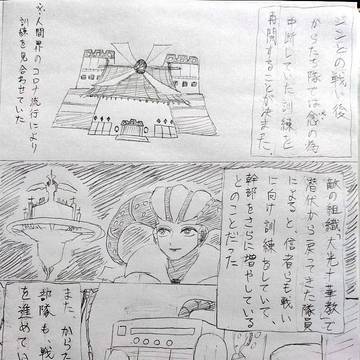 ジンとの戦い後
からたち隊では念の為
中断していた訓練を
再開することが出来た。
※人間界のコロナ流行により
訓練を見合わせていた
敵の組織「大光十華教」で
潜伏から戻ってきた隊員
によると、信者らも戦い
に向け訓練をしていて、
幹部をさらに増やしている
とのことだった
また、からた
部隊も、戦
を進めてい